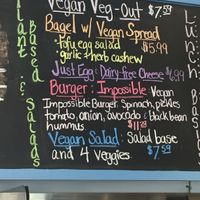 Vegan Veg-Out $7.59
Bagel w/ Vegan Spread
·Tofu egg salad $5.99
·garlic & herb cashew
Just Egg: Dairy-free Cheese $6.99
Burger: Impossible Vegan
Impossible Burger, Spinach, pickles
tomato, onion, avocado & black bean
hummus $11.89
Vegan Salad: Salad base
and 4 veggies $7.59
Plant
Based
&
Salads
Lunch